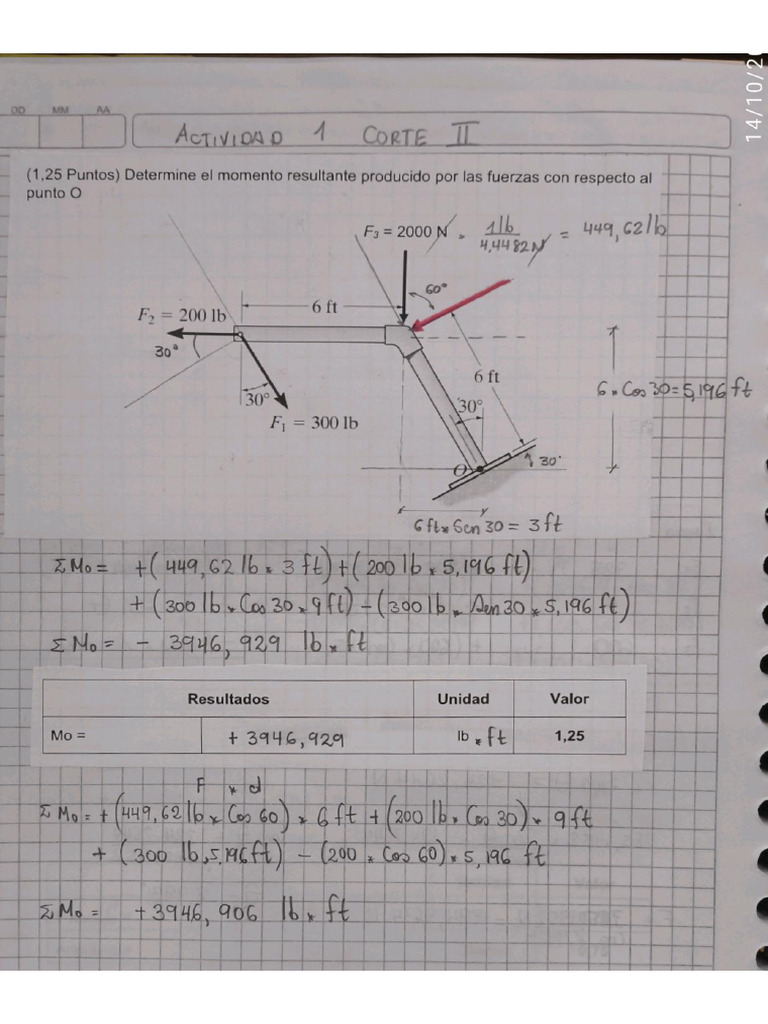 14/10/20
DD MM AA
ACTIVIDAD 1 CORTE II
(1,25 Puntos) Determine el momento resultante producido por las fuerzas con respecto al
punto O
F₃ = 2000 N * 1lb / 4,4482N = 449,62 lb
60°
6 ft
F₂ = 200 lb
30°
6 ft
6 * Cos 30 = 5,196 ft
30°
30°
F₁ = 300 lb
O
30°
6ft * Sen 30 = 3 ft
ΣMo = +(449,62 lb * 3 ft) + (200 lb * 5,196 ft)
+ (300 lb * Cos 30 * 9 ft) - (300 lb * Sen 30 * 5,196 ft)
ΣMo = - 3946,929 lb * ft
Resultados Unidad Valor
Mo = + 3946,929 lb * ft 1,25
F * d
ΣMo = +(449,62 lb * Cos 60) * 6 ft + (200 lb * Cos 30) * 9 ft
+ (300 lb, 5,196 ft) - (200 * Cos 60) * 5,196 ft
ΣMo = +3946,906 lb * ft